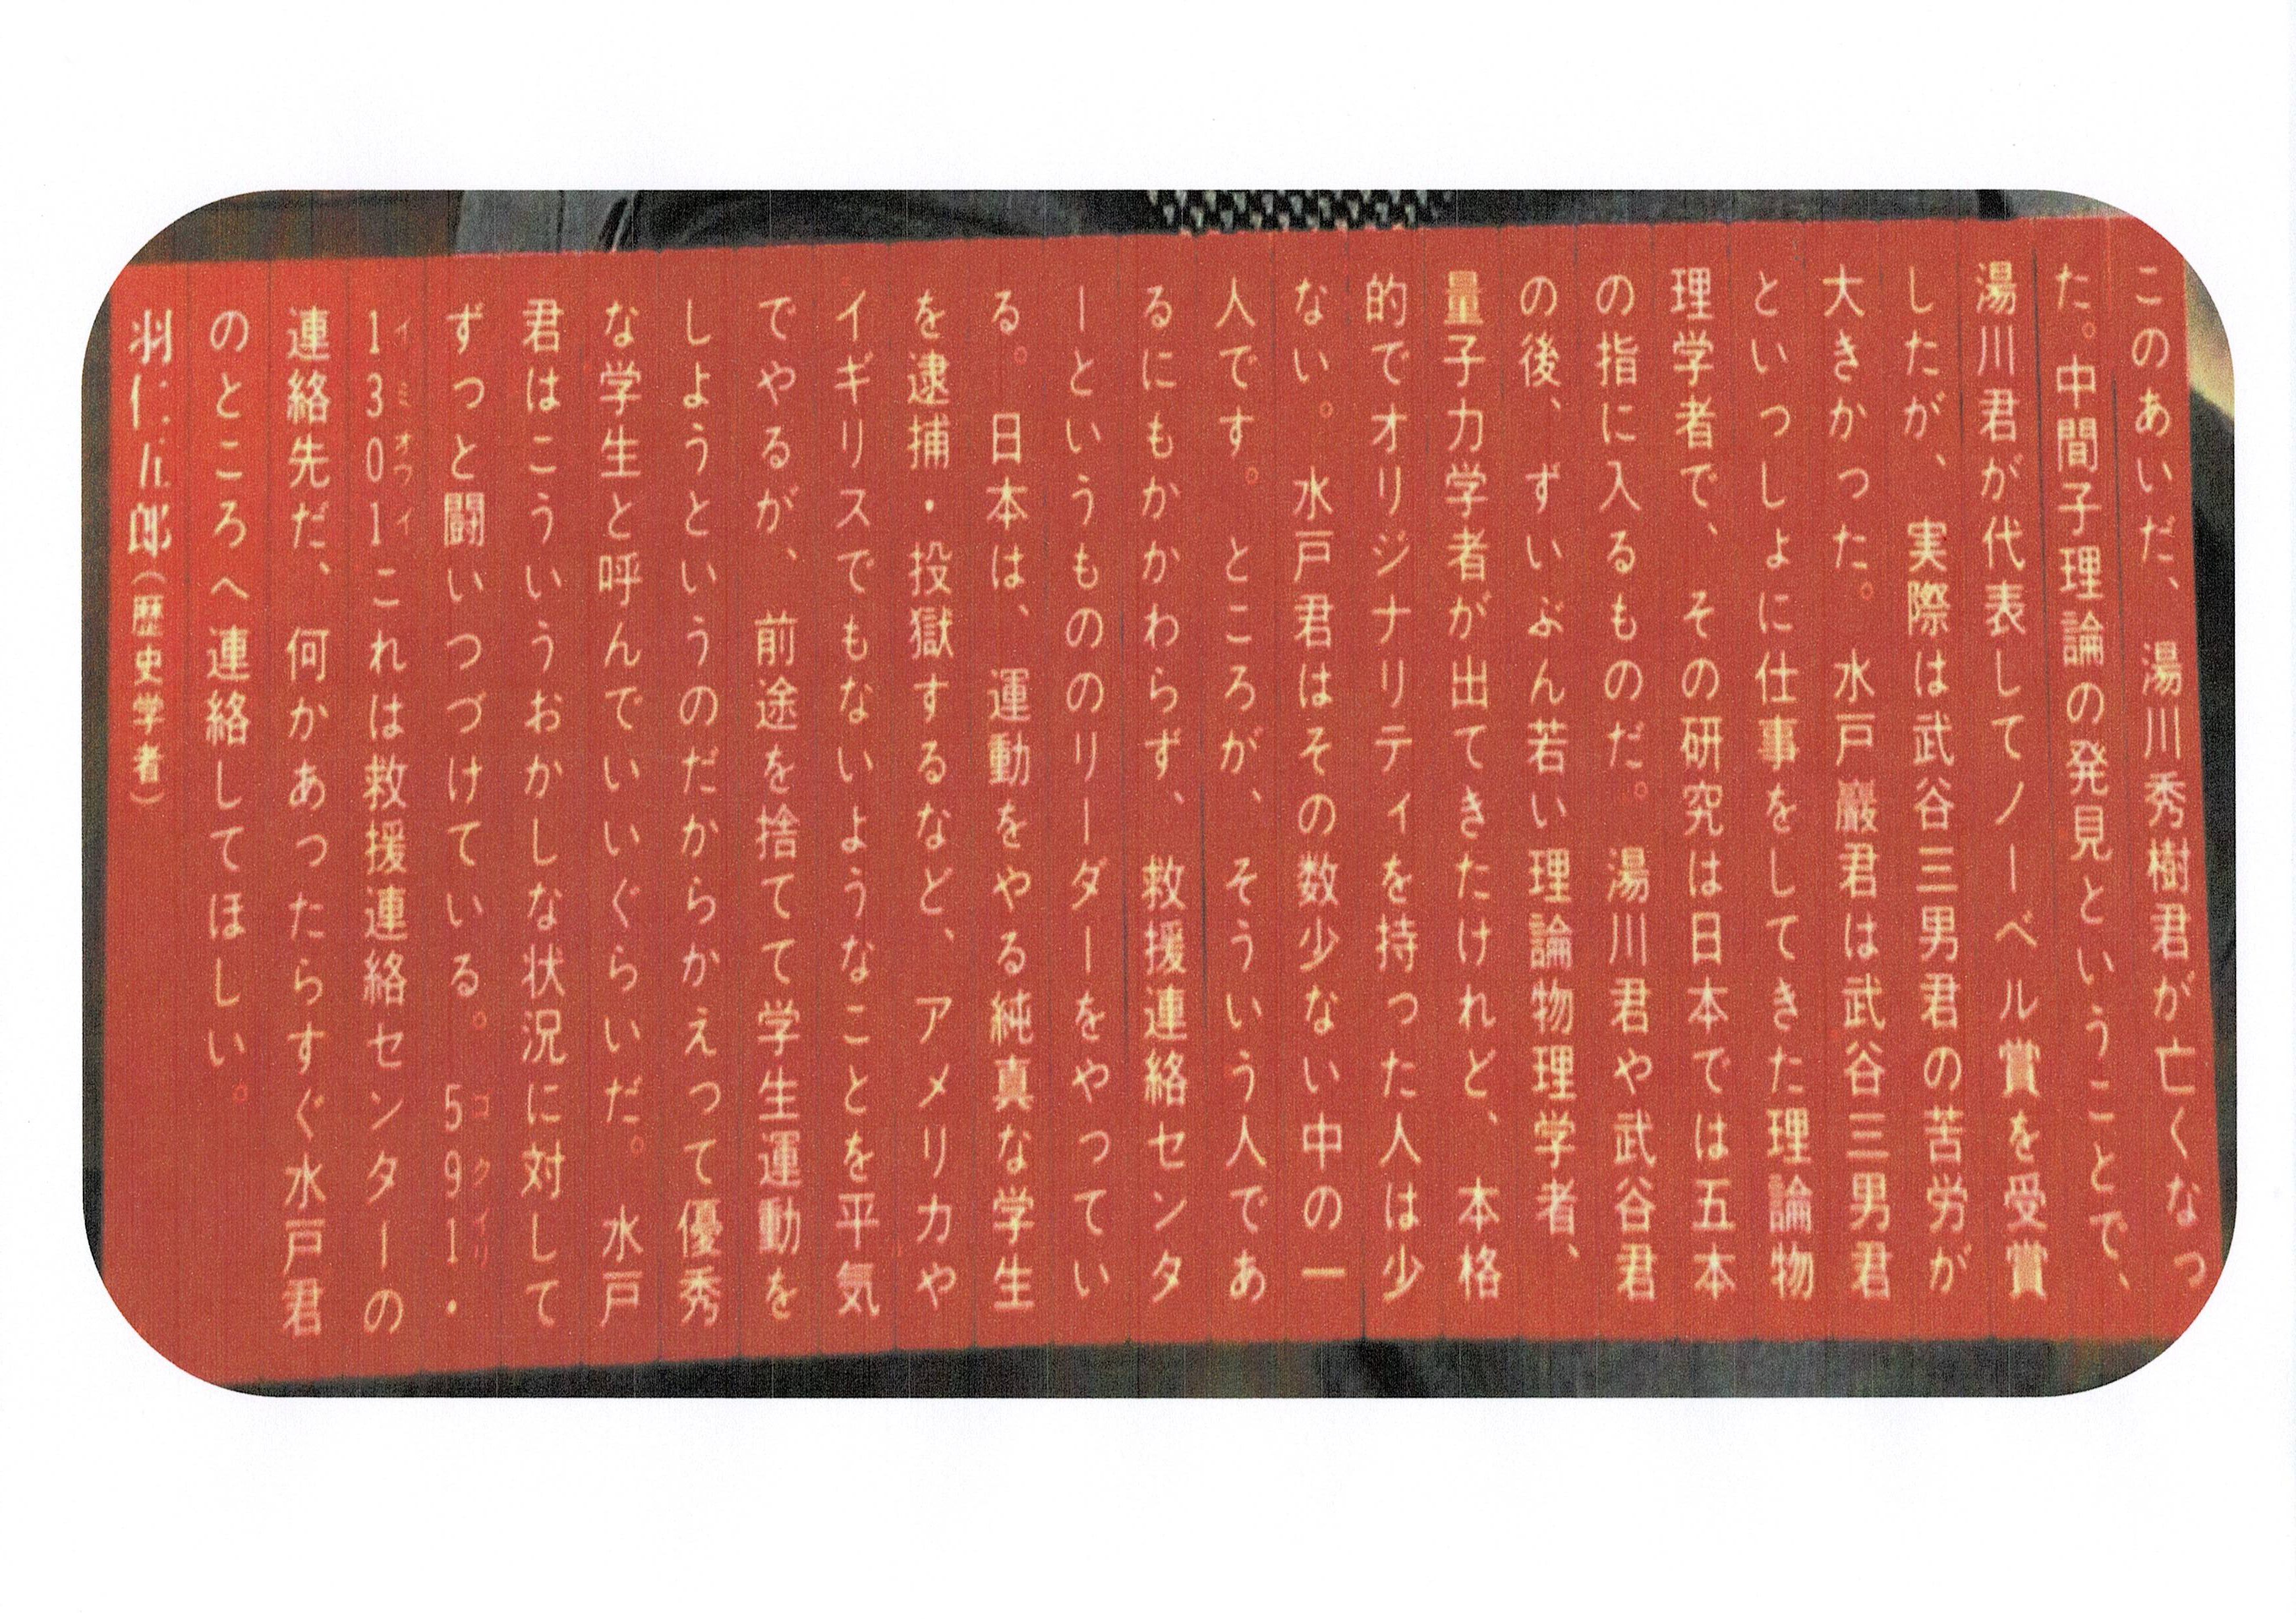 このあいだ、湯川秀樹君が亡くなっ
た。中間子理論の発見ということで、
湯川君が代表してノーベル賞を受賞
したが、実際は武谷三男君の苦労が
大きかった。水戸巖君は武谷三男君
といっしょに仕事をしてきた理論物
理学者で、その研究は日本では五本
の指に入るものだ。湯川君や武谷君
の後、ずいぶん若い理論物理学者、
量子力学者が出てきたけれど、本格
的でオリジナリティを持った人は少
ない。水戸君はその数少ない中の一
人です。ところが、そういう人であ
るにもかかわらず、救援連絡センタ
ーというもののリーダーをやってい
る。日本は、運動をやる純真な学生
を逮捕・投獄するなど、アメリカや
イギリスでもないようなことを平気
でやるが、前途を捨てて学生運動を
しようというのだからかえって優秀
な学生と呼んでいいぐらいだ。水戸
君はこういうおかしな状況に対して
ずっと闘いつづけている。591・
ゴクイリ
1301これは救援連絡センターの
イミオワイ
連絡先だ、何かあったらすぐ水戸君
のところへ連絡してほしい。
羽仁五郎（歴史学者）